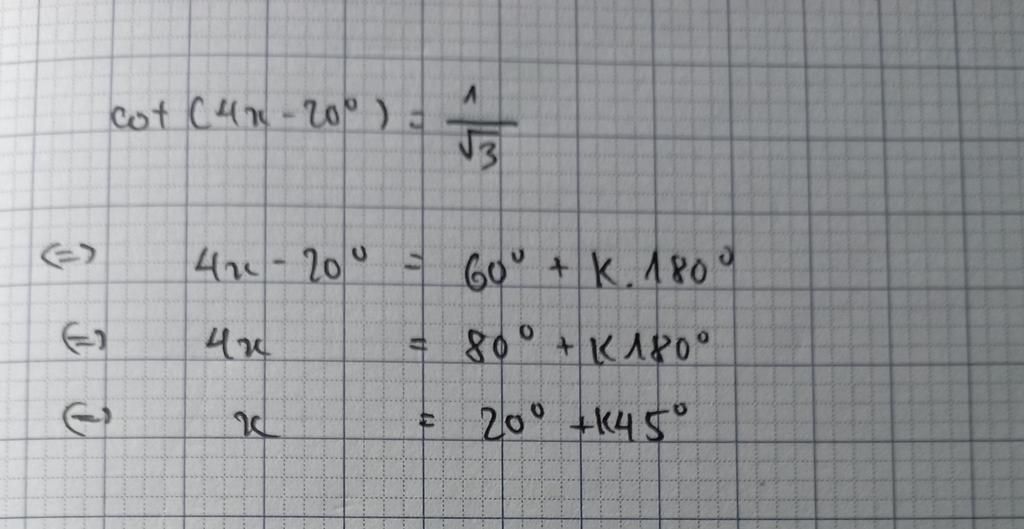 cot (4x - 20°) = 1/√3
<=> 4x - 20° = 60° + K. 180°
<=> 4x = 80° + K180°
<=> x = 20° + K45°